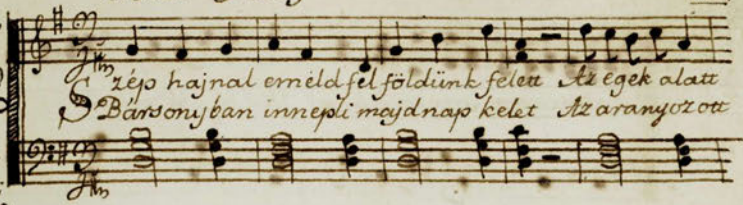 Szép hajnal emeld fel földünk felett Az egek alatt
Bársonyban innepli majd nap kelet Az aranyozott